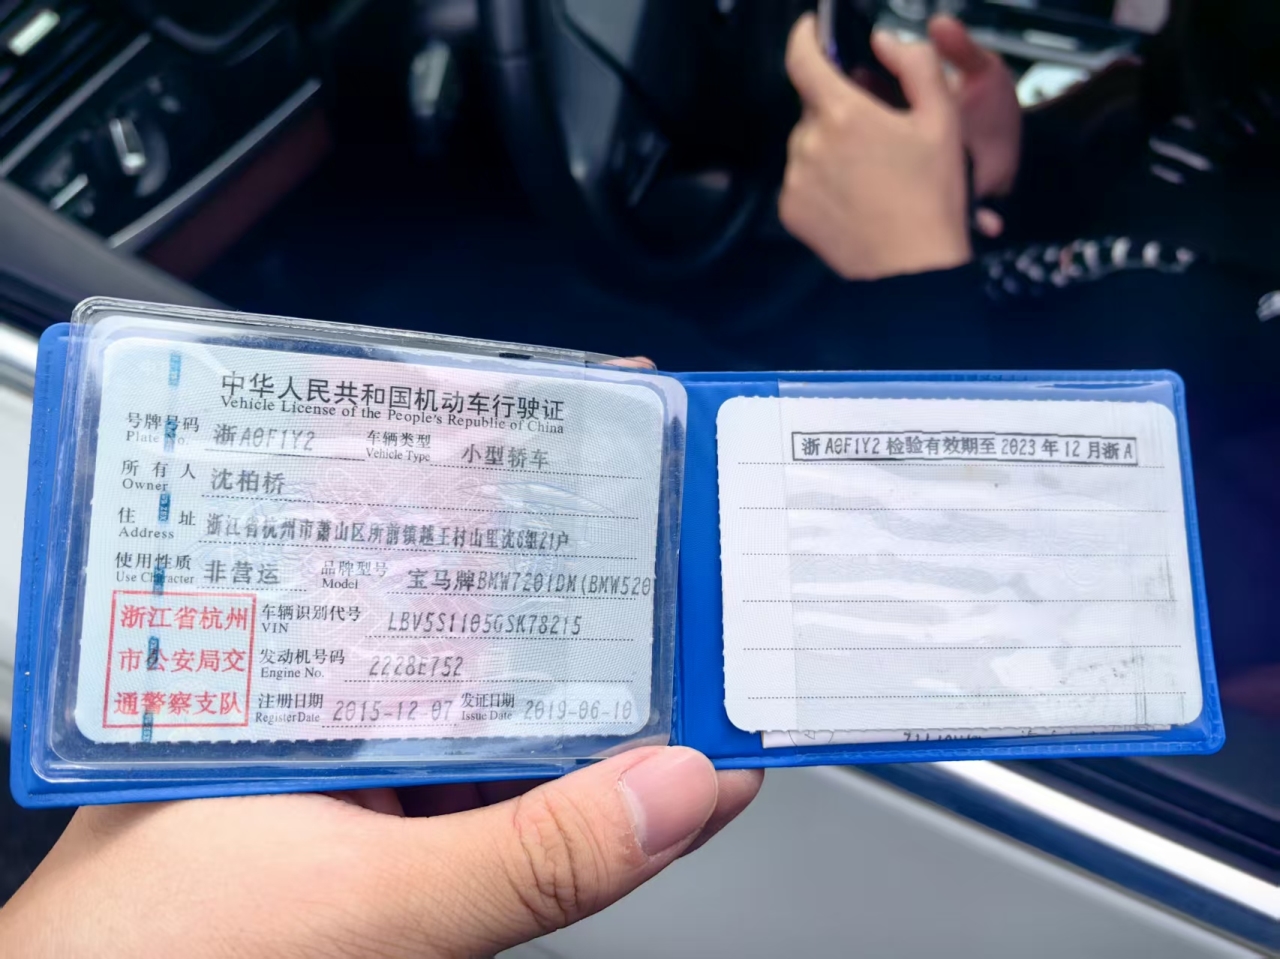 中华人民共和国机动车行驶证
Vehicle License of the People's Republic of China
号牌号码 浙A0F1Y2 车辆类型 小型轿车
Plate No. Vehicle Type
所有人 沈柏桥
Owner
住址 浙江省杭州市萧山区所前镇越王村山里沈6组21户
Address
使用性质 非营运 品牌型号 宝马牌BMW7201DM(BMW520
Use Character Model
浙江省杭州
市公安局交
通警察支队
车辆识别代号 LBV5S1105GSK78215
VIN
发动机号码 2228E752
Engine No.
注册日期 2015-12-07 发证日期 2019-06-10
Register Date Issue Date
浙A0F1Y2 检验有效期至 2023 年 12 月浙A